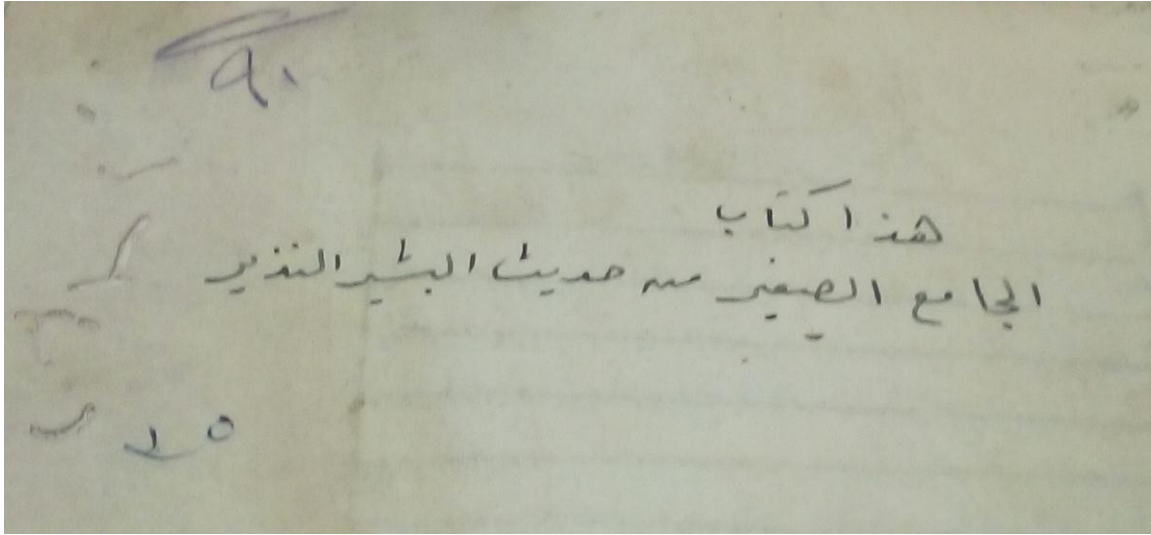 ٩٠
هذا كتاب
الجامع الصغير من حديث البشير النذير